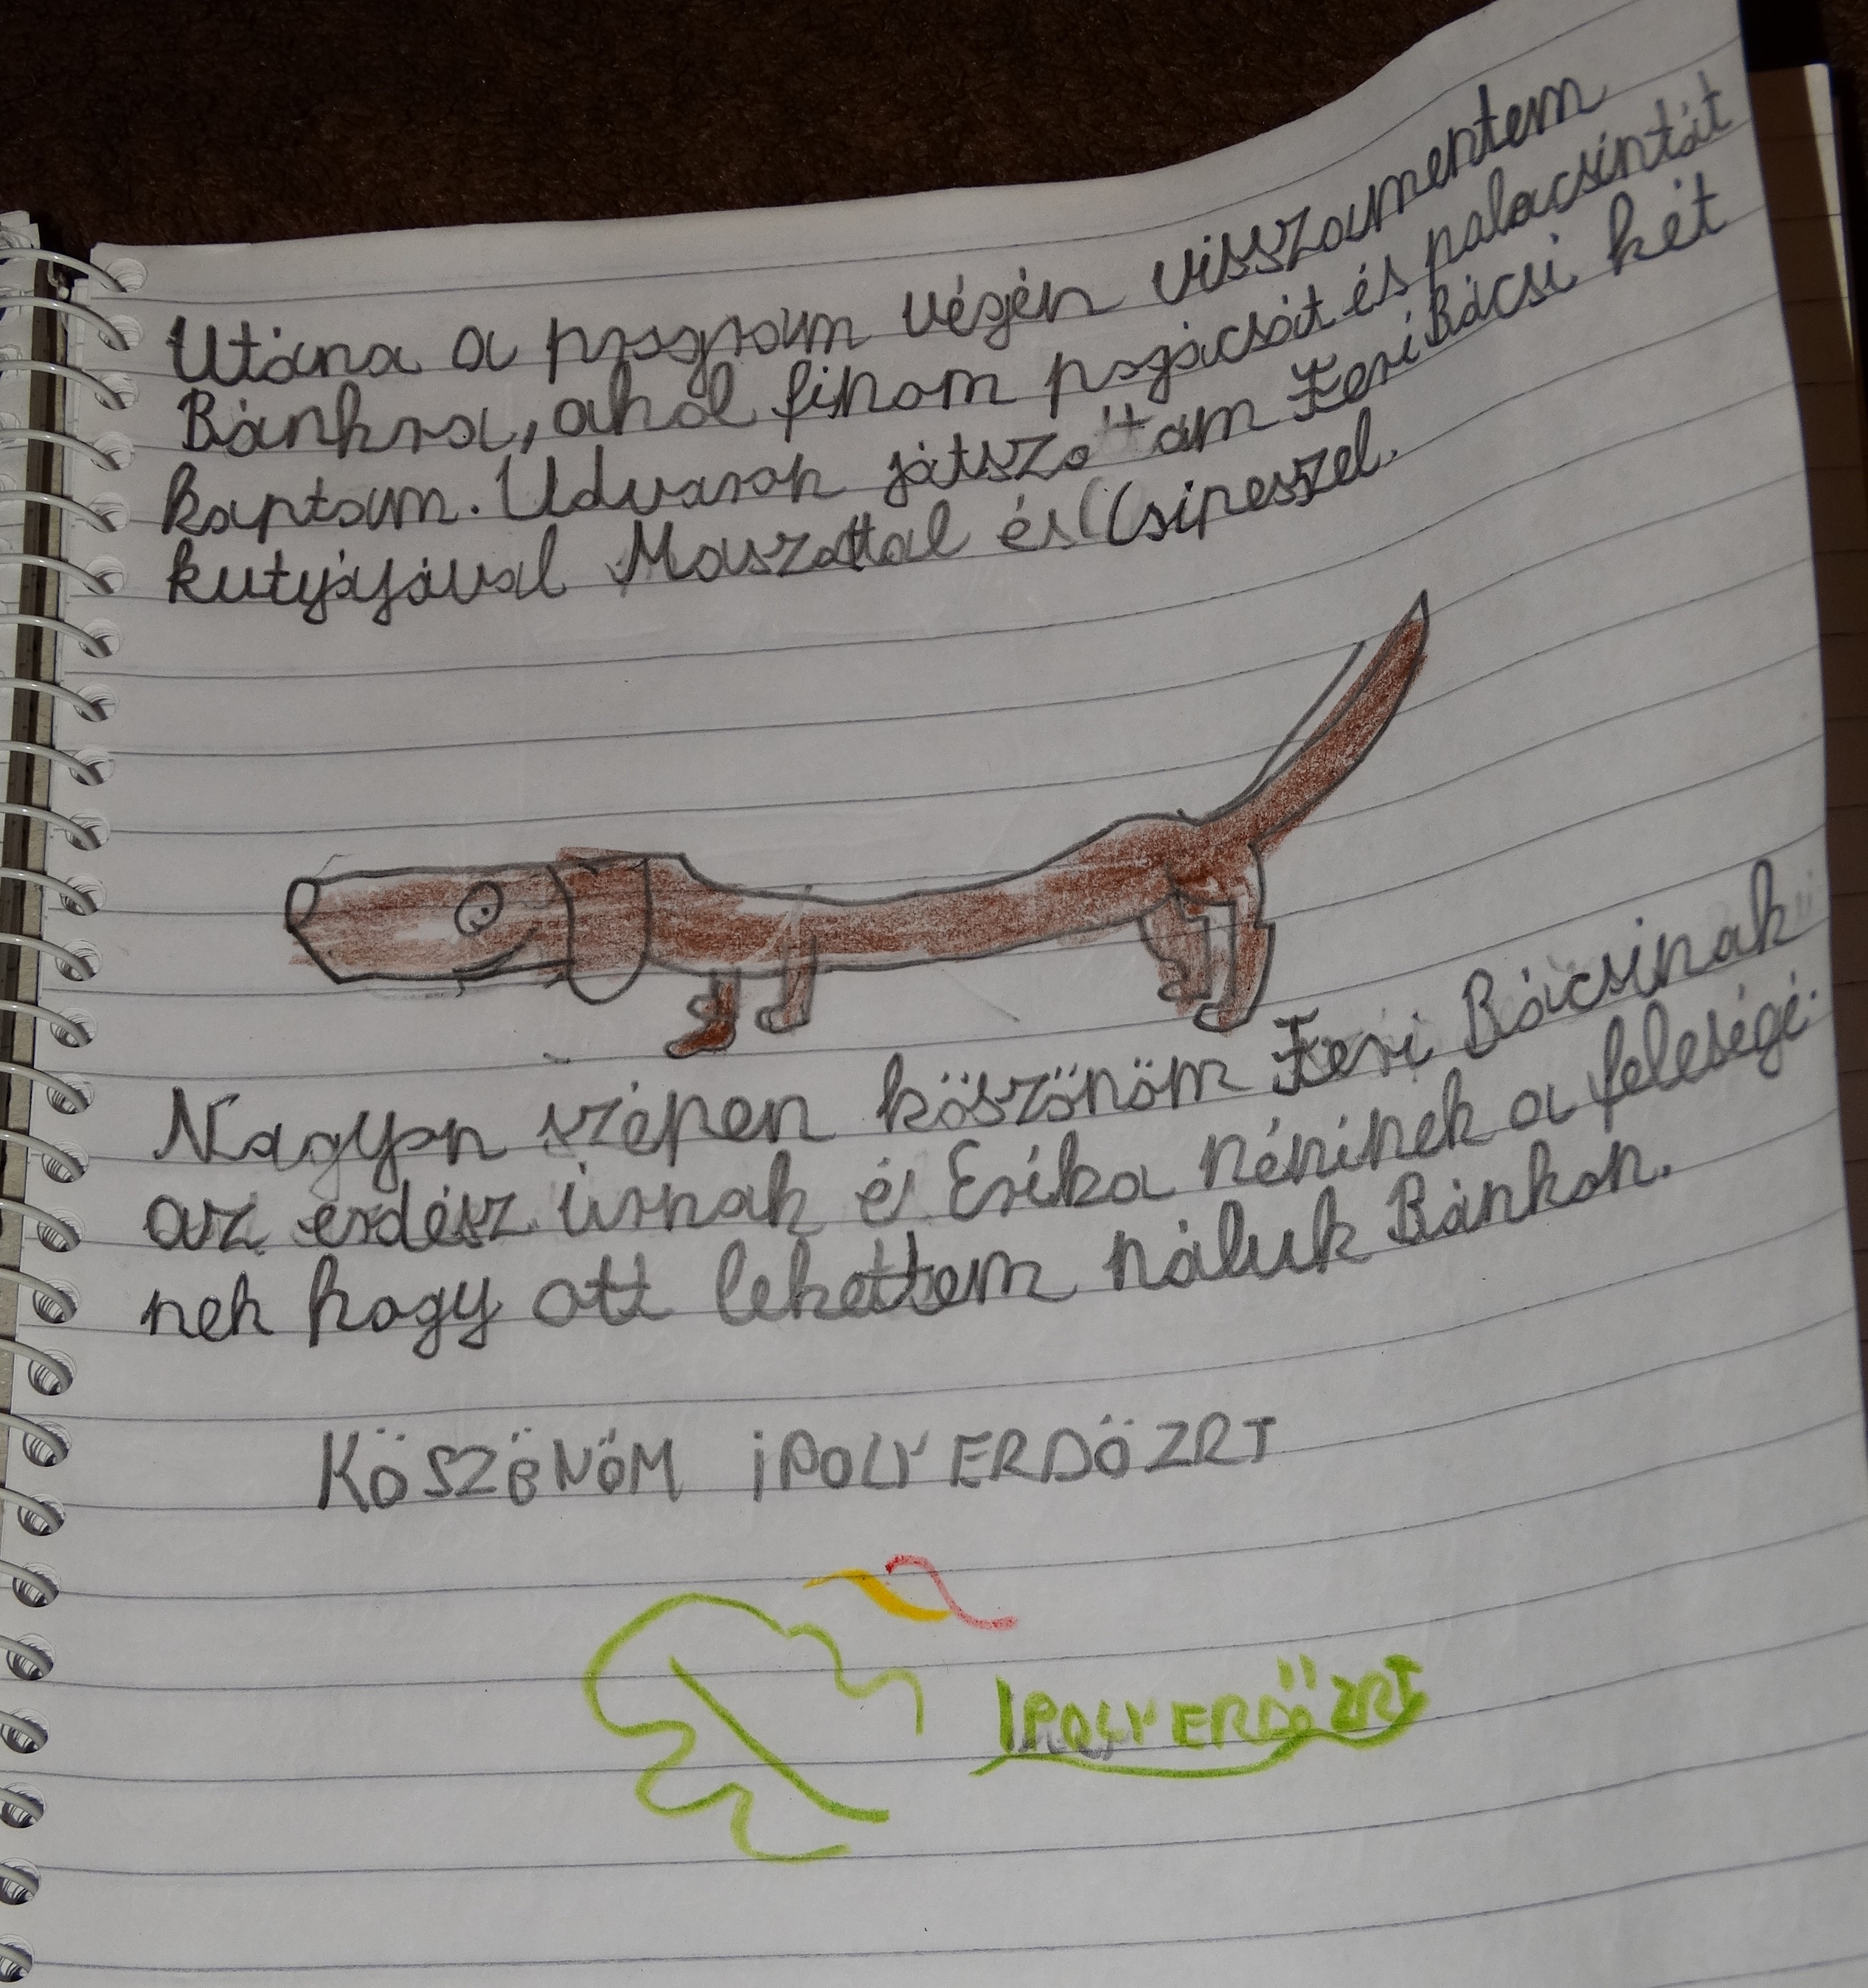 Utána a program végén visszamentem
Bánkra, ahol finom pogácsát és palacsintát
kaptam. Udvaron játszottam Feri Bácsi két
kutyájával Maszattal és Csipesszel.
Nagyon szépen köszönöm Feri Bácsinak
az erdész úrnak és Erika néninek a feleségé-
nek hogy ott lehettem náluk Bánkon.
KÖSZÖNÖM IPOLY ERDŐ ZRT
IPOLY ERDŐ ZRT